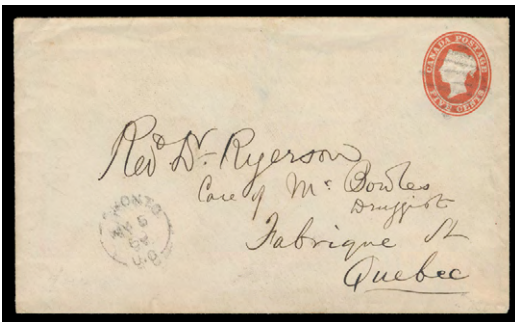 CANADA POSTAGE
FIVE CENTS
Revd Dr Ryerson
Care of Mr Bowles
Druggist
Fabrique St
Quebec
TORONTO